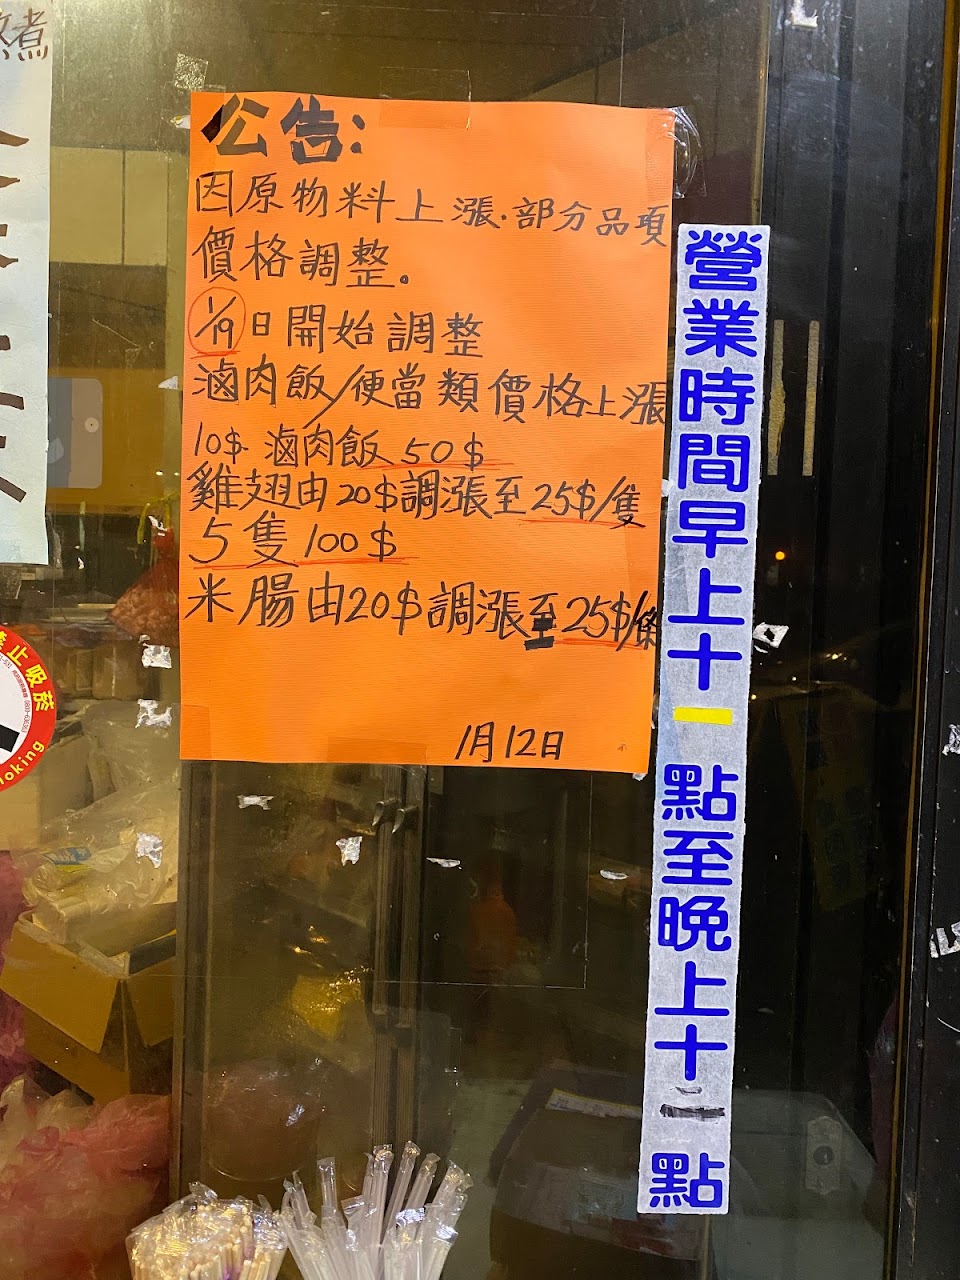 公告:
因原物料上漲.部分品項
價格調整。
1/19日開始調整
滷肉飯/便當類價格上漲
10$. 滷肉飯50$
雞翅由20$調漲至25$/隻
5隻100$
米腸由20$調漲至25$/條
1月12日
營業時間早上十一點至晚上十二點
煮
禁止吸菸